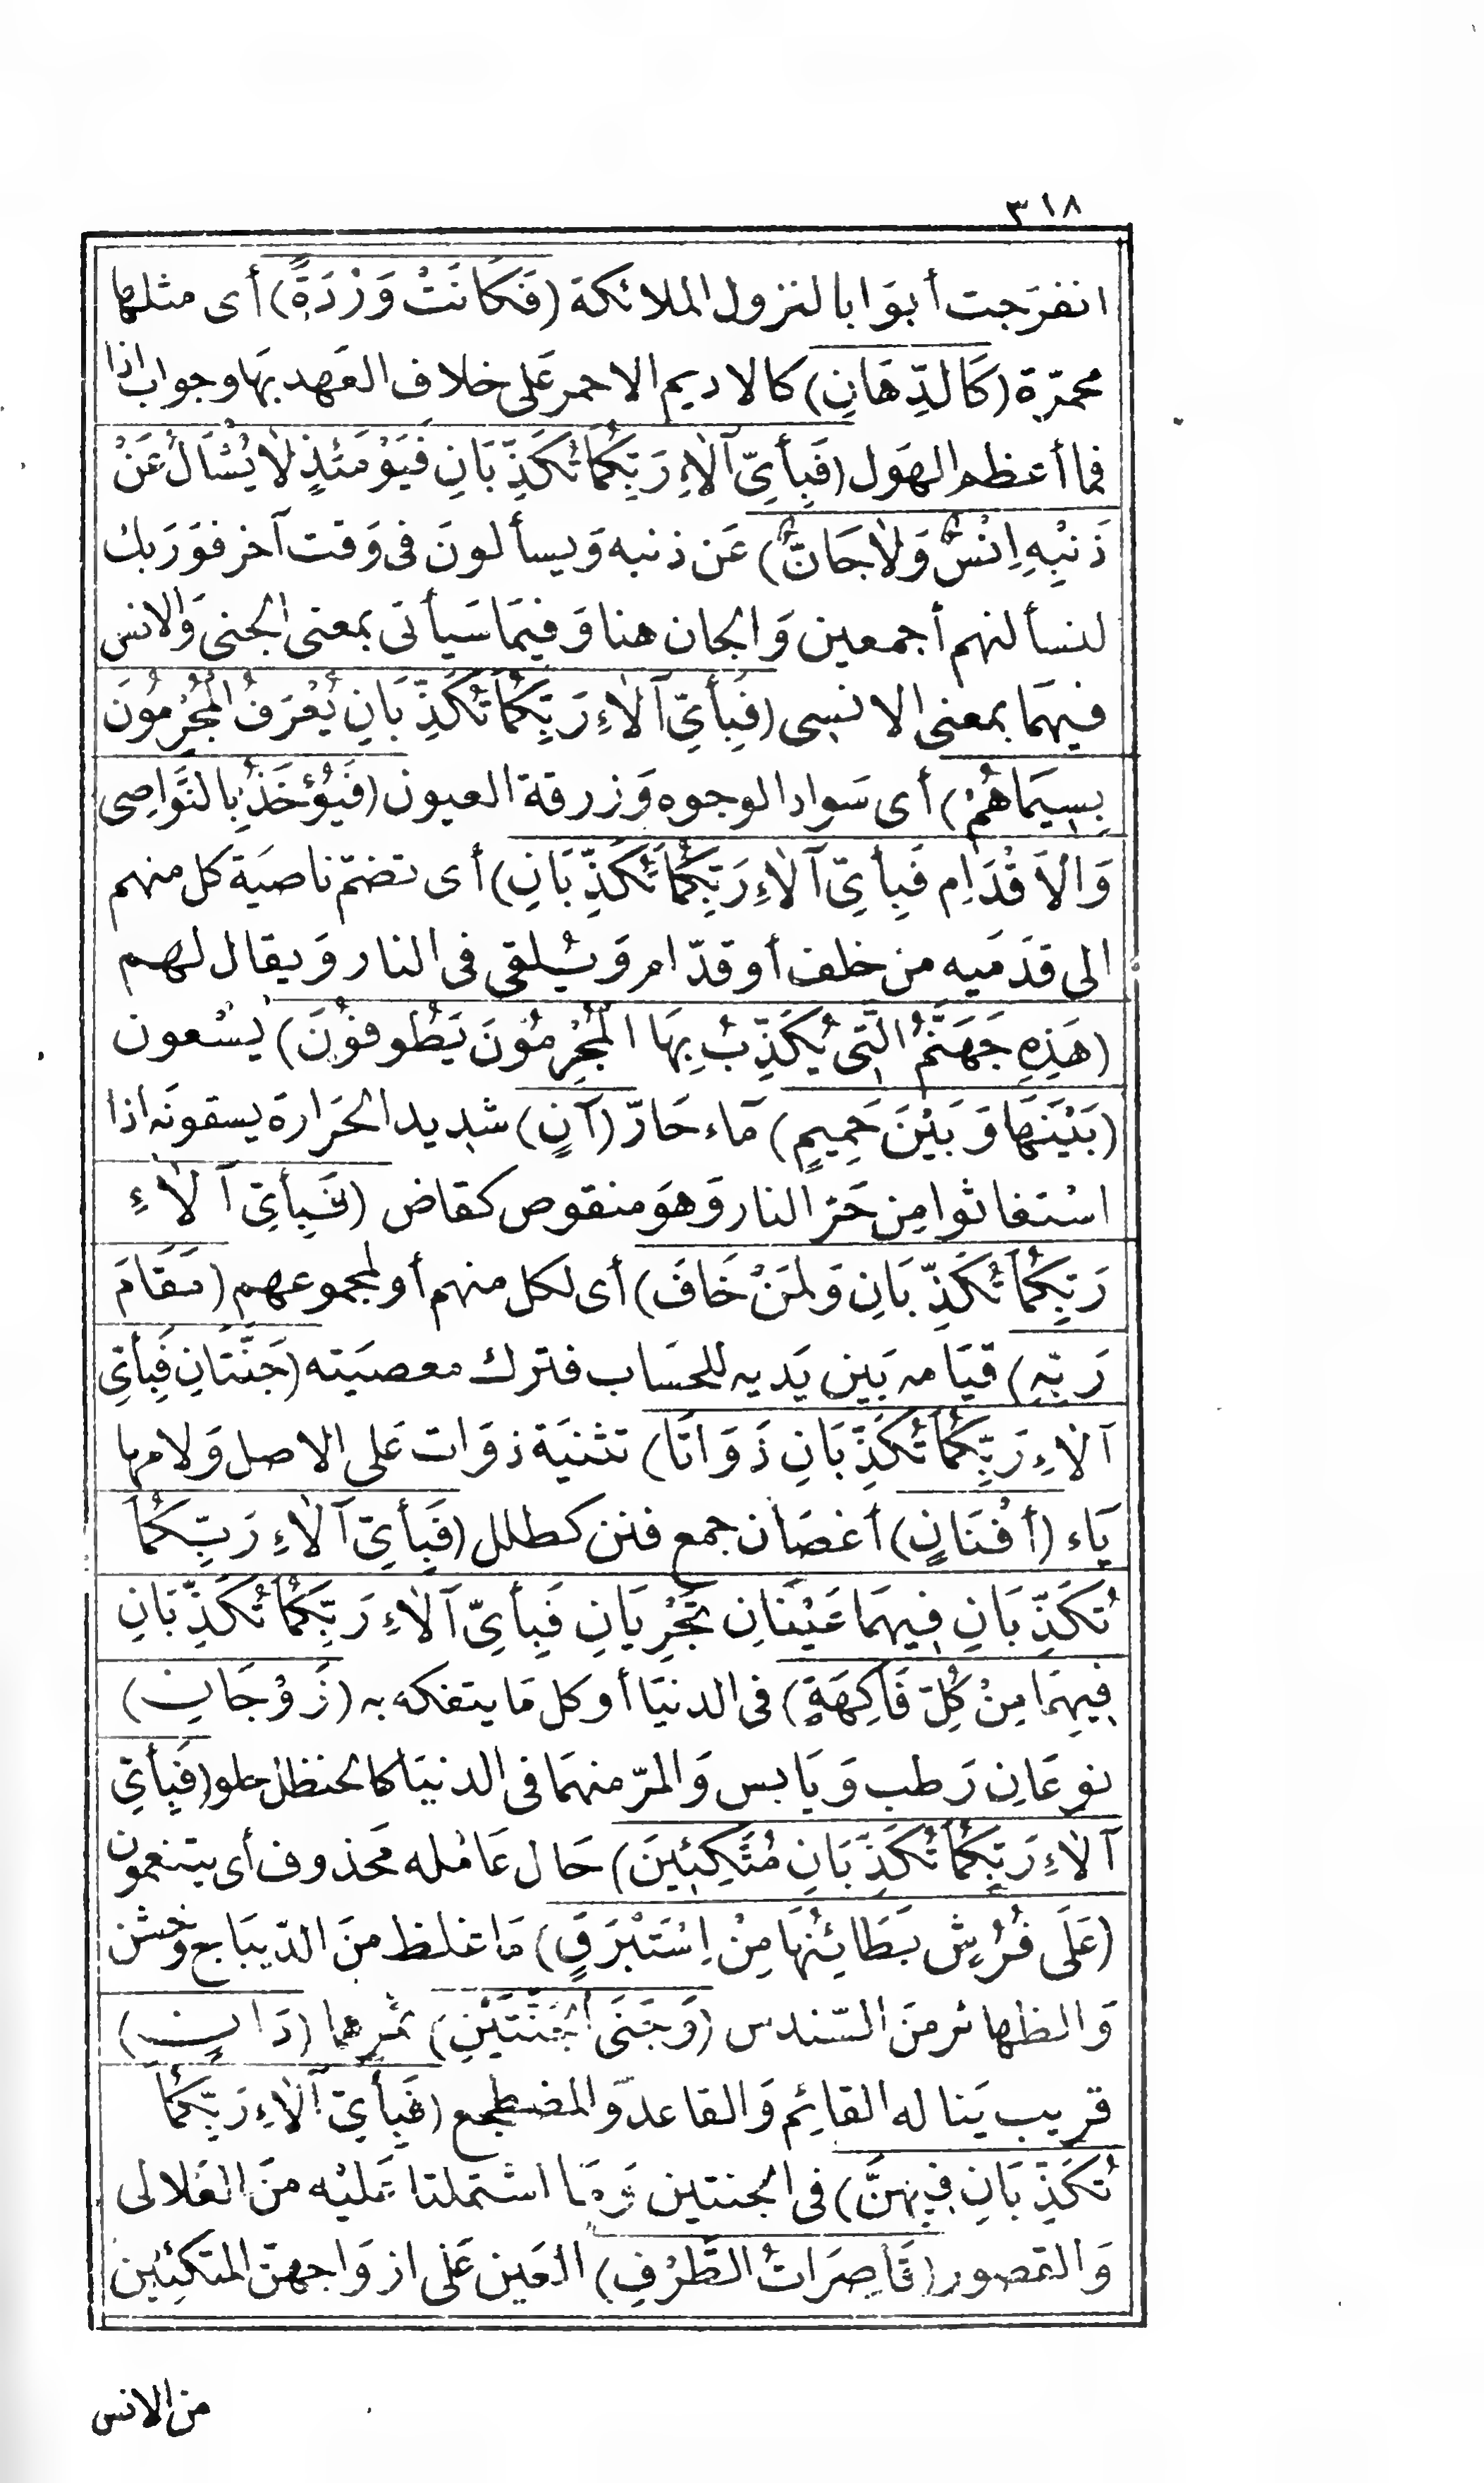 ٣١٨
انفرَجت أبوَابا لنزول الملائكة (فَكَانَتْ وَرْدَةً) أى مثلها
محمرّة (كَالدِّهَانِ) كالاديم الاحمر عَلى خلاف العَهد بهَا وجواب اذا
فما أعظم الهَول (فَبِأَىِّ آلاَءِ رَبِّكُمَا تُكَذِّبَانِ فَيَوْمَئِذٍ لاَ يُسْأَلُ عَنْ
ذَنْبِهِ اِنْسٌ وَلاَ جَانٌّ) عَن ذنبه وَيسألونَ فى وَقت آخر فوَرَبك
لنسألنهم أجمعين وَالجان هنا وَفيمَا سَيأتى بمعنى الجنى وَالانس
فيهمَا بمعنى الانسى (فَبِأَىِّ آلاَءِ رَبِّكُمَا تُكَذِّبَانِ يُعْرَفُ الْمُجْرِمُونَ
بِسِيمَاهُمْ) أى سَواد الوجوه وَزرقة العيون (فَيُؤْخَذُ بِالنَّوَاصِى
وَالاَقْدَامِ فَبِأَىِّ آلاَءِ رَبِّكُمَا تُكَذِّبَانِ) أى تضمّ ناصيَة كل منهم
الى قدَميه من خلف أو قدّام وَيُلقى فى النار وَيقال لهم
(هَذِهِ جَهَنَّمُ الَّتِى يُكَذِّبُ بِهَا الْمُجْرِمُونَ يَطُوفُونَ) يَسْعون
(بَيْنَهَا وَبَيْنَ حَمِيمٍ) مَاء حَارّ (آنٍ) شديد الحَرارة يسقونَه اذا
اسْتغاثوا مِن حَرّ النار وَهوَ منقوص كقاض (فَبِأَىِّ آلاَءِ
رَبِّكُمَا تُكَذِّبَانِ وَلِمَنْ خَافَ) أى لكل منهم أو لمجموعهم (مَقَامَ
رَبِّهِ) قيَامه بَين يَديه للحسَاب فترك معصيَته (جَنَّتَانِ فَبِأَىِّ
آلاَءِ رَبِّكُمَا تُكَذِّبَانِ ذَوَاتَا) تثنيَة ذوَات عَلى الاصل وَلامها
يَاء (أَفْنَانٍ) أغصَان جمع فنن كطلل (فَبِأَىِّ آلاَءِ رَبِّكُمَا
تُكَذِّبَانِ فِيهِمَا عَيْنَانِ تَجْرِيَانِ فَبِأَىِّ آلاَءِ رَبِّكُمَا تُكَذِّبَانِ
فِيهِمَا مِنْ كُلِّ فَاكِهَةٍ) فى الدنيَا أو كل مَا يتفكه به (زَوْجَانِ)
نوعَانِ رَطب وَيَابس وَالمرّ منهمَا فى الدنيَا كالحنظل حلو (فَبِأَىِّ
آلاَءِ رَبِّكُمَا تُكَذِّبَانِ مُتَّكِئِينَ) حَال عَامله مَحذوف أى يتنعمون
(عَلَى فُرُشٍ بَطَائِنُهَا مِنْ اِسْتَبْرَقٍ) مَا غلظ منَ الدّيبَاج وَخشن
وَالظهائر منَ السّندس (وَجَنَى الْجَنَّتَيْنِ) ثمرهما (دَانٍ)
قريب يَناله القائِم وَالقاعد وَالمضطجع (فَبِأَىِّ آلاَءِ رَبِّكُمَا
تُكَذِّبَانِ فِيهِنَّ) فى الجنتين وَمَا اشتملتا عَليْه منَ العَلالى
وَالقصور (قَاصِرَاتُ الطَّرْفِ) العَين عَلى ازوَاجهنّ المتكئين
من الانس